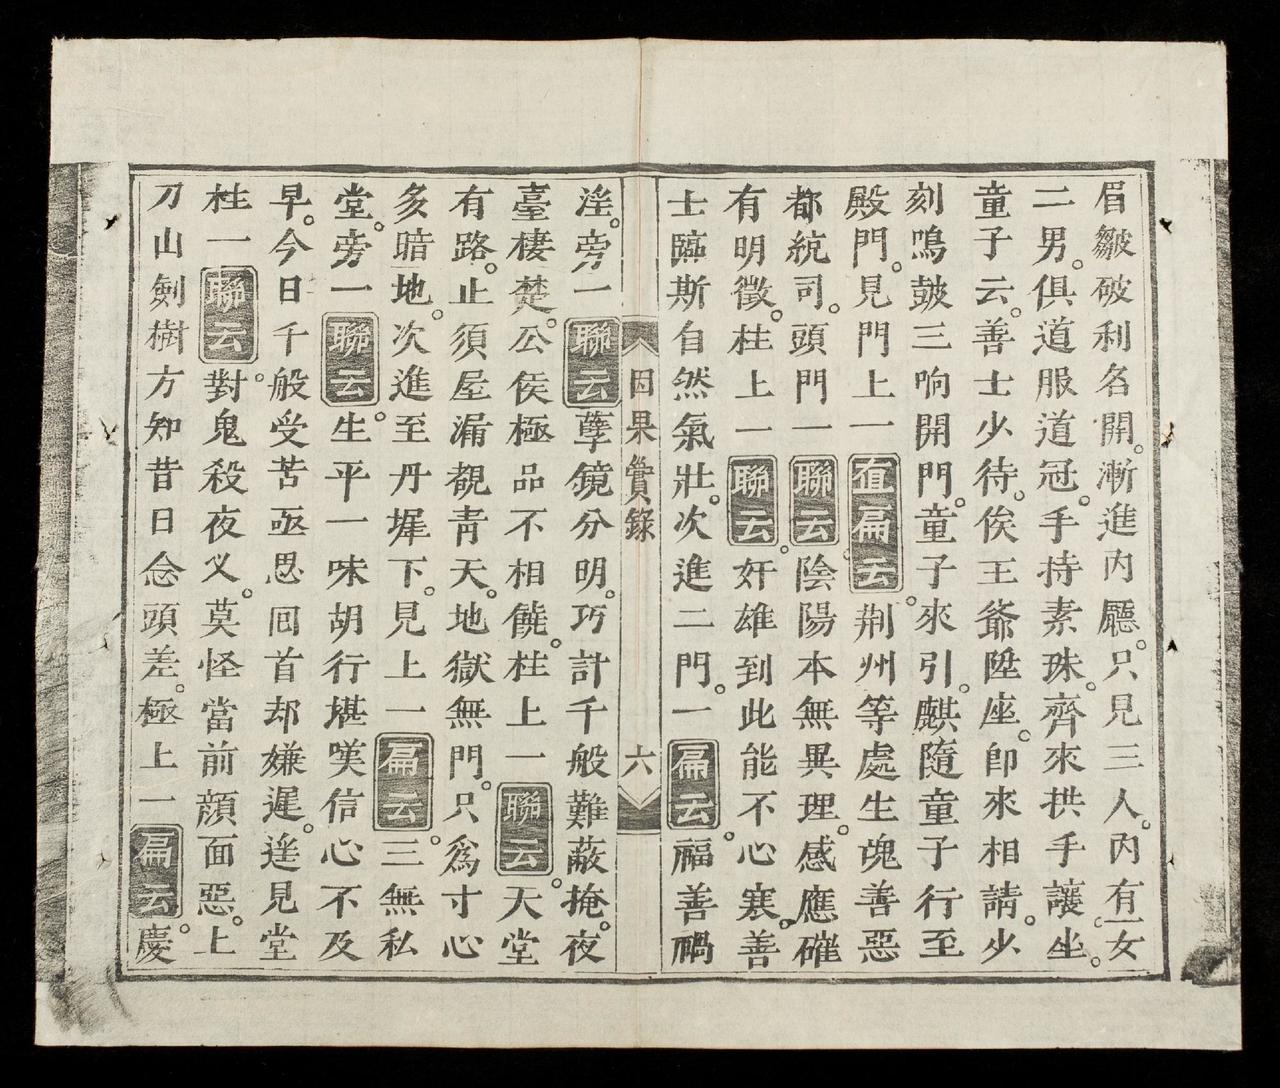 眉皺破利名開。漸進内廳。只見三人。内有一女
二男。俱道服道冠。手持素珠。齊來拱手讓坐。
童子云。善士少待。俟王爺陞座。卽來相請。少
刻鳴鼓三响開門。童子來引。麒隨童子行至
殿門。見門上一直扁云。荆州等處生魂善惡
都統司。頭門一聯云。陰陽本無異理。感應確
有明徵。柱上一聯云。奸雄到此能不心寒。善
士臨斯自然氣壯。次進二門。一扁云。福善禍
因果實錄 六
淫。旁一聯云。孽鏡分明。巧計千般難蔽掩。夜
臺棲楚。公侯極品不相饒。柱上一聯云。天堂
有路。止須屋漏覩青天。地獄無門。只爲寸心
多暗地。次進至丹墀下。見上一扁云。三無私
堂。旁一聯云。生平一味胡行堪嘆信心不及
早。今日千般受苦亟思回首却嫌遲。遙見堂
柱一聯云。對鬼殺夜义。莫怪當前顔面惡。上
刀山劍樹方知昔日念頭差。極上一扁云。慶